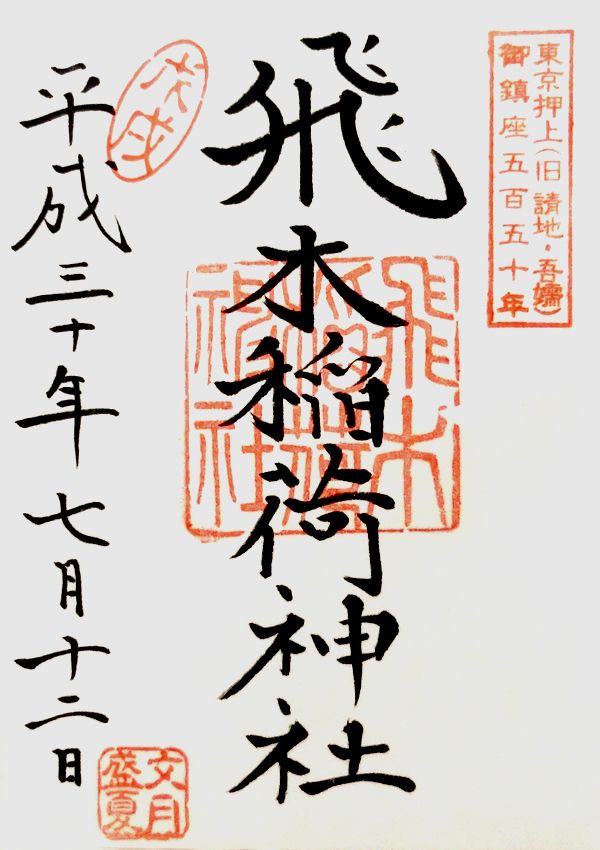 東京押上(旧請地・吾嬬)
御鎮座五百五十年
飛木稲荷神社
飛木
稲荷
神社
奉拝
平成三十年七月十二日
文月
盛夏